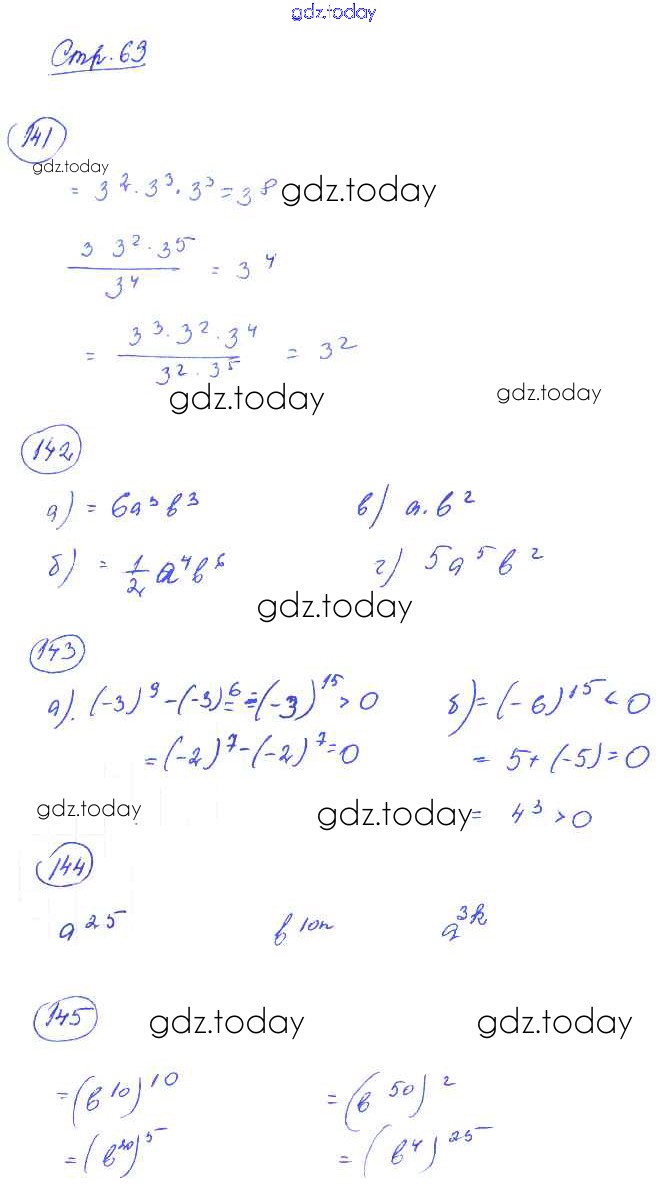 gdz.today
Стр. 63
141
gdz.today
= 3² · 3³ · 3³ = 3⁸ gdz.today
3 3² · 3⁵ / 3⁴ = 3⁴
= 3³ · 3² · 3⁴ / 3² · 3⁵ = 3²
gdz.today gdz.today
142
а) = 6a³b³ в) a · b²
б) = 1/2 a⁴b⁶ г) 5a⁵b²
gdz.today
143
а). (-3)⁹ - (-3)⁶ = = (-3)¹⁵ > 0 б) = (-6)¹⁵ < 0
= (-2)⁷ - (-2)⁷ = 0 = 5 + (-5) = 0
gdz.today gdz.today = 4³ > 0
144
a²⁵ b¹⁰ⁿ a³ᵏ
145 gdz.today gdz.today
= (b¹⁰)¹⁰ = (b⁵⁰)²
= (b²⁰)⁵ = (b⁴)²⁵